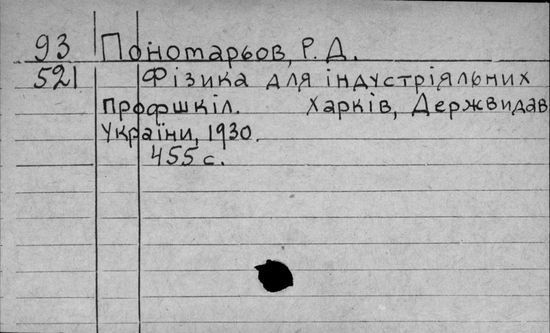 93 Пономарьов, Р. Д.
521 Фізика для індустріяльних
профшкіл. Харків, Держвидав
України, 1930.
455 с.